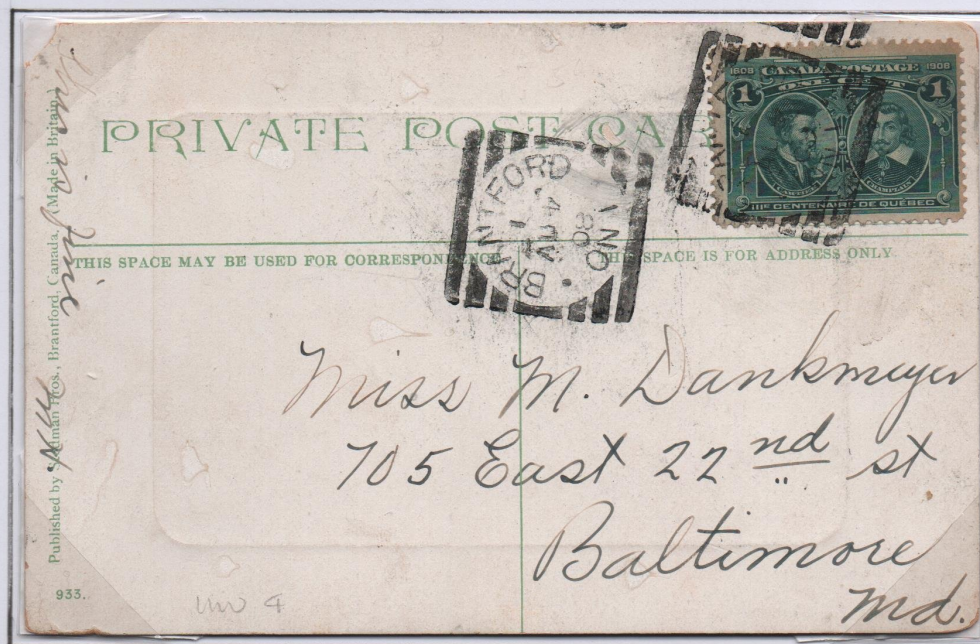 PRIVATE POST CA
1608 CANADA POSTAGE 1908
ONE CENT
1 1
CARTIER CHAMPLAIN
IIIe CENTENAIRE DE QUÉBEC
BRANTFORD
ONT.
08
THIS SPACE MAY BE USED FOR CORRESPONDENCE
THIS SPACE IS FOR ADDRESS ONLY
Miss M. Dankmeyer
705 East 22 nd st
Baltimore
Md.
Published by Stedman Bros., Brantford, Canada, (Made in Britain.)
933.